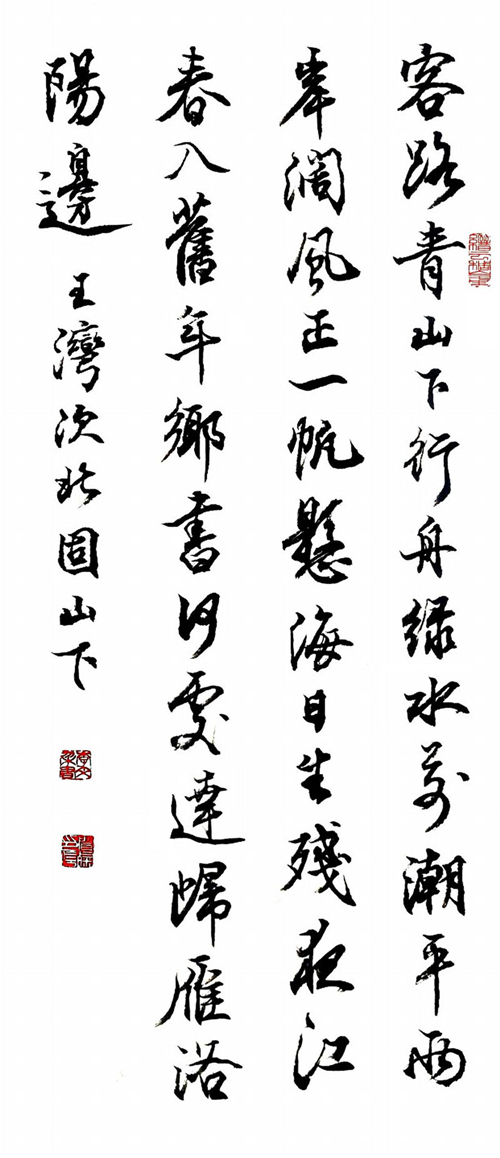 客路青山下行舟綠水前潮平兩
岸濶風正一帆懸海日生殘夜江
春入舊年鄉書何處達歸雁洛
陽邊 王灣次北固山下